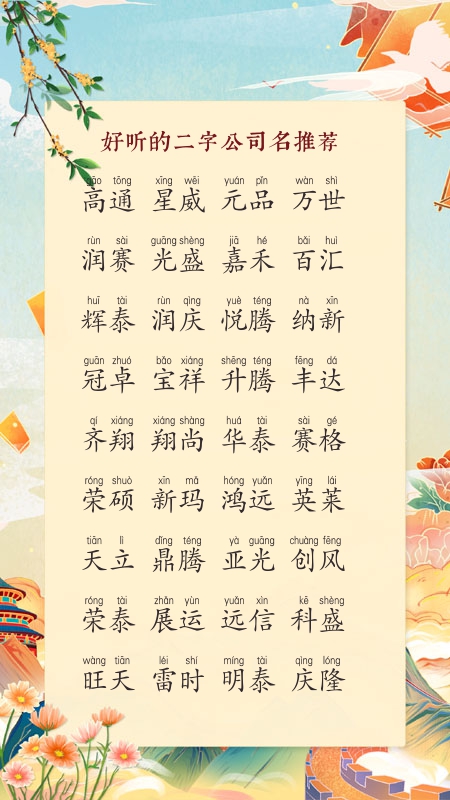 好听的二字公司名推荐
gāo tōng xīng wēi yuán pǐn wàn shì
高通 星威 元品 万世
rùn sài guāng shèng jiā hé bǎi huì
润赛 光盛 嘉禾 百汇
huī tài rùn qìng yuè téng nà xīn
辉泰 润庆 悦腾 纳新
guān zhuó bǎo xiáng shēng téng fēng dá
冠卓 宝祥 升腾 丰达
qí xiáng xiáng shàng huá tài sài gé
齐翔 翔尚 华泰 赛格
róng shuò xīn mǎ hóng yuǎn yīng lái
荣硕 新玛 鸿远 英莱
tiān lì dǐng téng yà guāng chuàng fēng
天立 鼎腾 亚光 创风
róng tài zhǎn yùn yuǎn xìn kē shèng
荣泰 展运 远信 科盛
wàng tiān léi shí míng tài qìng lóng
旺天 雷时 明泰 庆隆